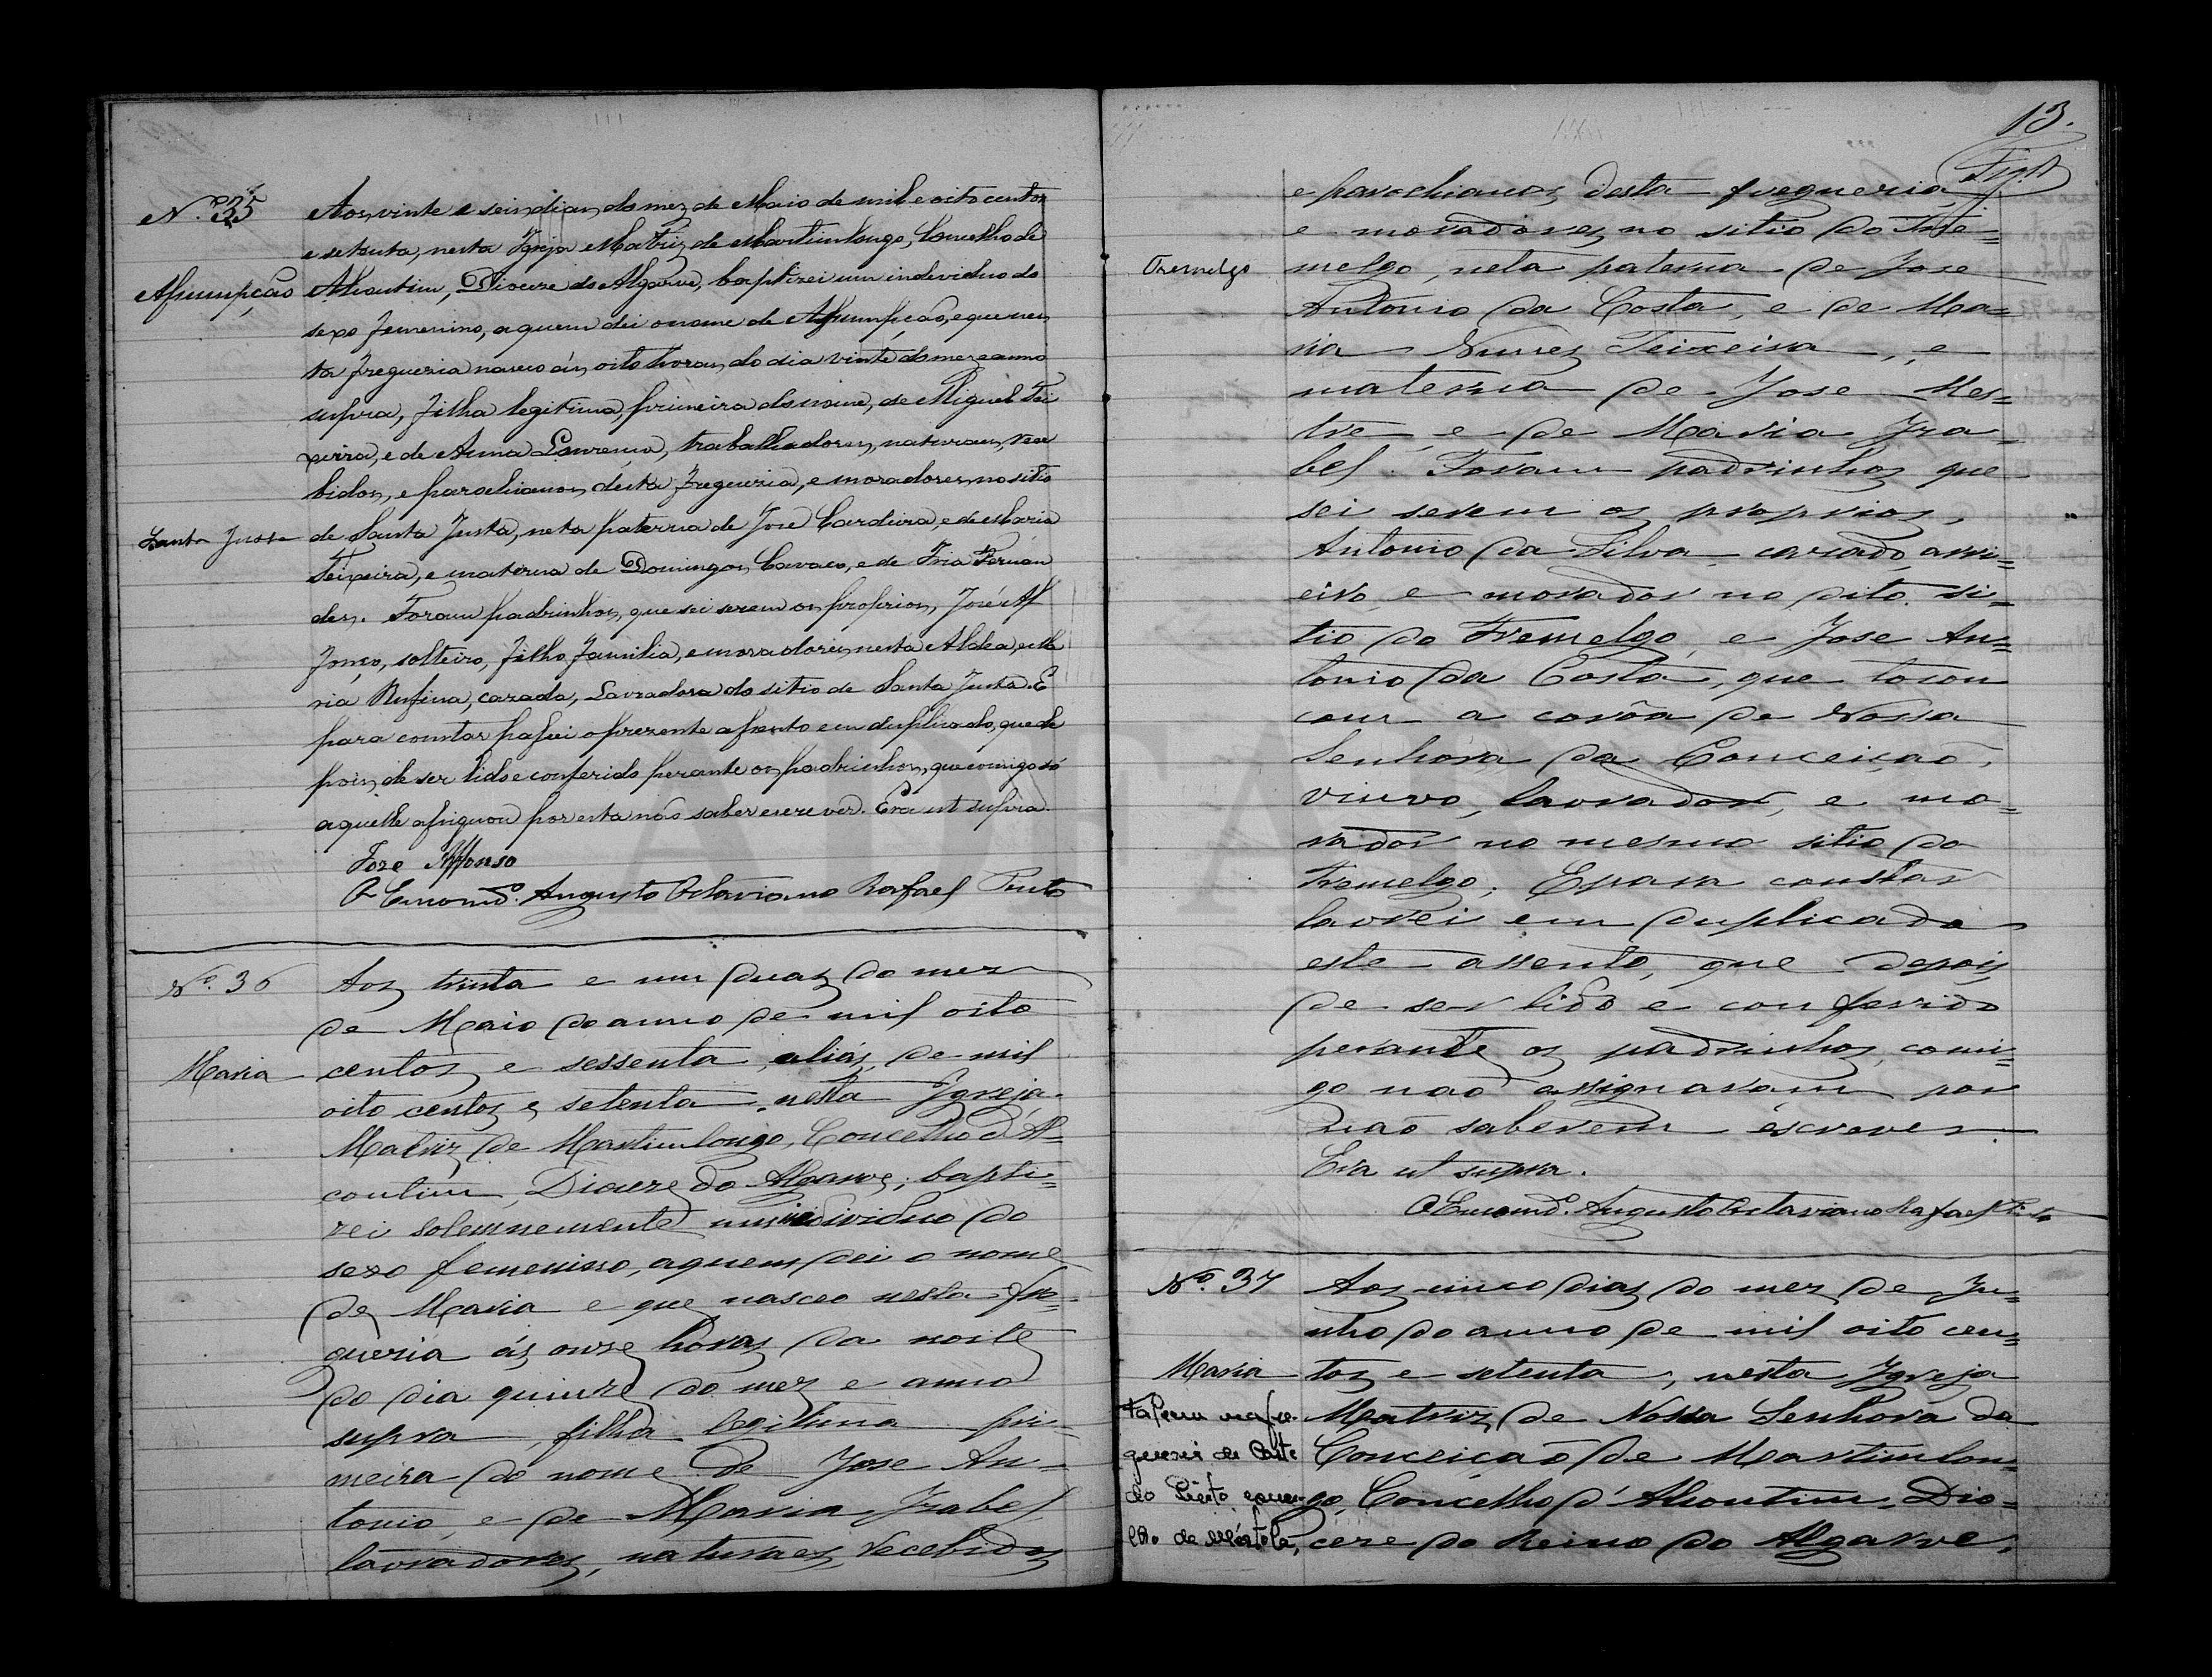 N.º 35
Assumpção
Santa Justa
Aos vinte e seis dias do mez de Maio de mil e oito centos
e setenta, nesta Igreja Matriz de Martimlongo, Concelho de
Alcoutim, Diocese do Algarve, baptizei um individuo do
sexo femenino, a quem dei o nome de Assumpção, e que nes
ta fregueria nasceo ás oito horas do dia vinte do mez e anno
supra, filha legitima, primeira do nome, de Miguel Tei
xeira, e de Anna Lourença, trabalhadores, naturaes, rece
bidos, e parochianos desta fregueria, e moradores no sitio
de Santa Justa, neta paterna de José Cardeira, e de Maria
Teixeira, e materna de Domingos Cavaco, e de Iria Fernan
des. Foram padrinhos, que sei serem os proprios, José Af
fonço, solteiro, filho familia, e moradores nesta Aldea, e Ma
ria Rufina, cazada, Lavradora do sitio de Santa Justa. E
para constar passei o prezente assento em duplicado, que de
pois de ser lido e conferido perante os padrinhos, que comigo só
aquelle assignou por esta não saber escrever. Era ut supra.
Joze Affonso
O Encomd.º Augusto Octaviano Rafael Pinto
N.º 36
Maria
Aos trinta e um duas do mez
de Maio do anno de mil oito
centos e sessenta, aliás, de mil
oito centos e setenta, nesta Igreja
Matriz de Martimlongo, Concelho d'Al=
coutim, Diocese do Algarve, bapti=
zei solemnemente um individuo do
sexo femenino, a quem dei o nome
de Maria e que nasceo nesta fre=
gueria ás onze horas da noite
do dia quinze do mez e anno
supra, filha legitima pri=
meira do nome de Jose An=
tonio, e de Maria Izabel,
lavradores, naturaes, recebidos
13.
e parochianos desta fregueria,
e moradores no sitio do Tre=
Tremelgo
melgo, neta paterna de Jose
Antonio da Costa, e de Ma=
ria Nunes Teixeira, e
materna de Jose Mes=
tre, e de Maria Iza=
bel. Foram padrinhos que
sei serem os proprios,
Antonio da Silva cazado, arri=
eiro, e morador no dito si=
tio do Tremelgo, e Jose An=
tonio da Costa, que tocou
com a corôa de Nossa
Senhora da Conceição,
viuvo, lavrador, e mo=
rador no mesmo sitio do
Tremelgo; E para constar
lavrei em duplicado
este assento, que depois
de ser lido e conferido
perante os padrinhos, comi=
go não assignaram por
não saberem escrever.
Era ut supra.
O Encomd.º Augusto Octaviano Rafael Pinto
N.º 37
Maria
Aos cinco dias do mez de Ju=
nho do anno de mil oito cen=
tos e setenta, nesta Igreja
Matriz de Nossa Senhora da
Conceição de Martimlon=
go, Concelho d'Alcoutim, Dio=
cese do Reino do Algarve,
na fre-
gueria de
de Mértola,